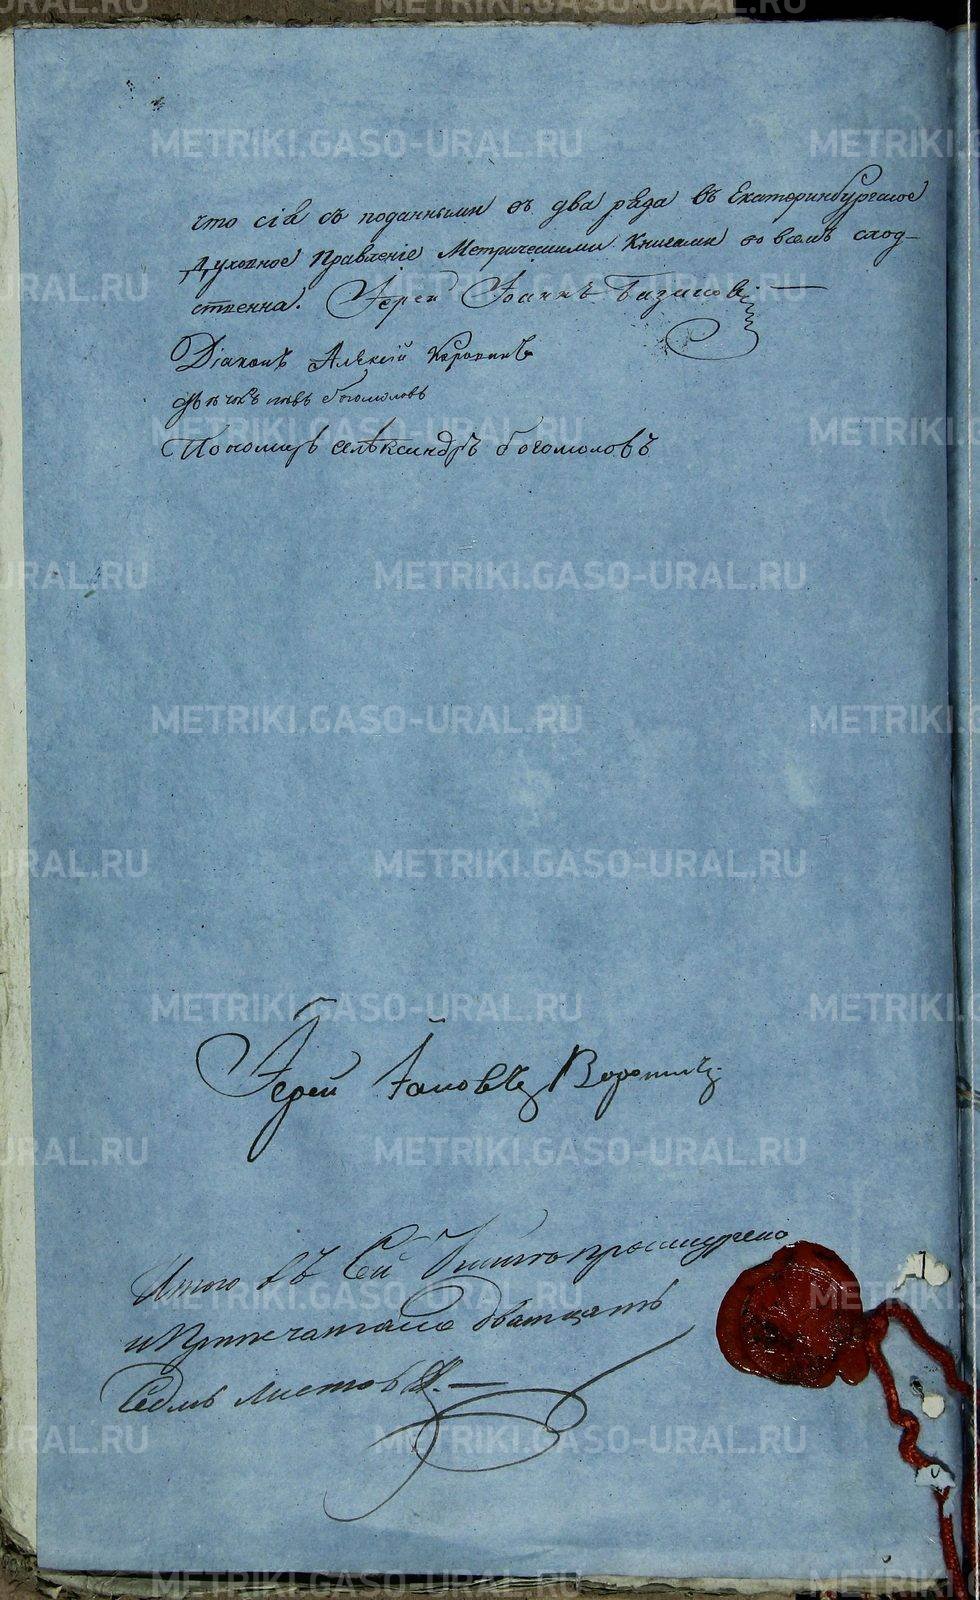 что сія съ поданными въ два ряда въ Екатеринбургское
Духовное Правленіе Метрическими Книгами во всемъ сход-
ственна. Іерей Іоаннъ
Діаконъ Алексій Коровинъ
Богомоловъ
Пономарь Александръ Богомоловъ
Іерей Іаковъ Воронинъ
Итого въ Сей Книге прошнурено
и Припечатано дватцать
Седмь листовъ.
METRIKI.GASO-URAL.RU